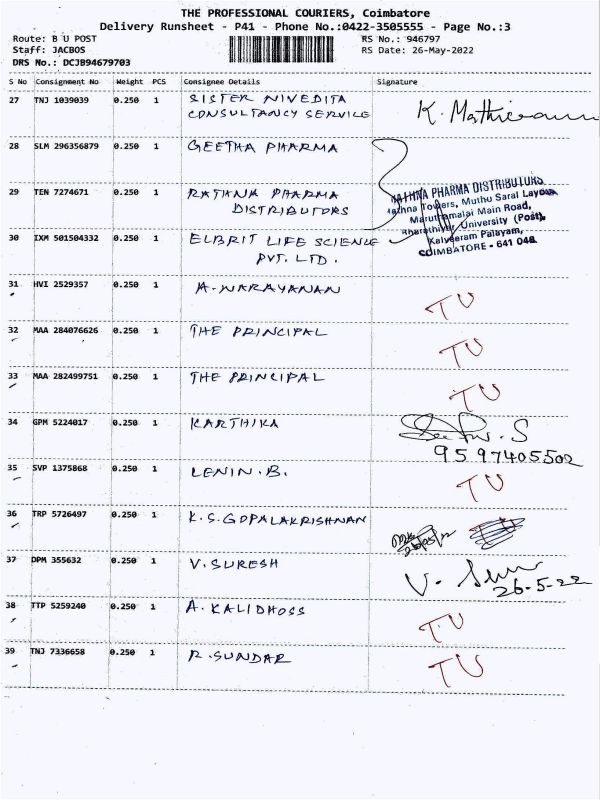 THE PROFESSIONAL COURIERS, Coimbatore
Delivery Runsheet - P41 - Phone No.:0422-3505555 - Page No.:3
Route: B U POST RS No.: 946797
Staff: JACBOS RS Date: 26-May-2022
DRS No.: DCJB94679703
S No Consignment No Weight PCS Consignee Details Signature
27 TNJ 1039039 0.250 1 SISTER NIVEDITA
CONSULTANCY SERVICE
28 SLM 296356879 0.250 1 GEETHA PHARMA
29 TEN 7274671 0.250 1 RATHNA PHARMA
DISTRIBUTORS
RATHNA PHARMA DISTRIBUTORS
Rathna Towers, Muthu Saral Layout
Maruthamalai Main Road,
Bharathiyar University (Post),
Kalveeram Palayam,
COIMBATORE - 641 046
30 IXM 501504332 0.250 1 ELBRIT LIFE SCIENCE
PVT. LTD.
31 HVI 2529357 0.250 1 A. NARAYANAN TU
32 MAA 284076626 0.250 1 THE PRINCIPAL TU
33 MAA 282499751 0.250 1 THE PRINCIPAL TU
34 GPM 5224017 0.250 1 KARTHIKA
9597405502
35 SVP 1375868 0.250 1 LENIN.B. TU
36 TRP 5726497 0.250 1 K.S.GOPALAKRISHNAN
37 DPM 355632 0.250 1 V.SURESH
26-5-22
38 TTP 5259240 0.250 1 A. KALIDHOSS TU
39 TNJ 7336658 0.250 1 R.SUNDAR TU